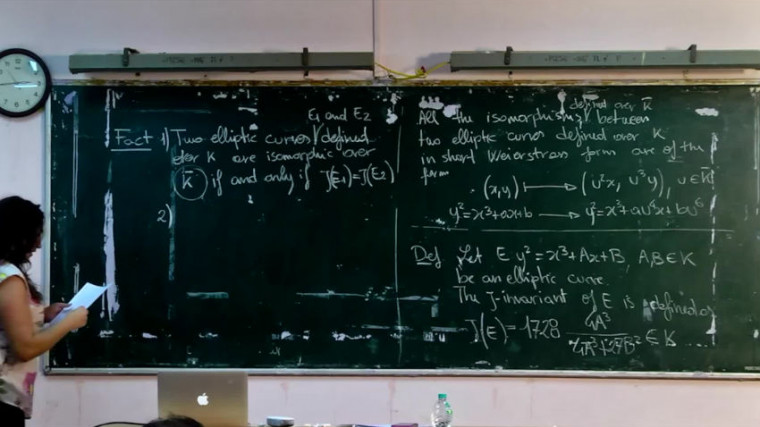 E₁ and E₂
Fact 1) Two elliptic curves / defined
over K are isomorphic over
K̄ if and only if J(E₁)=J(E₂)
2)
defined over K̄
All the isomorphisms / between
two elliptic curves defined over K
in short Weierstrass form are of the
form
(x,y) ⟼ (u²x, u³y), u∈K̄
y²=x³+ax+b → y²=x³+au⁴x+bu⁶
Def Let E y²=x³+Ax+B A,B∈K
be an elliptic curve.
The J-invariant of E is defined as
J(E) = 1728 4A³/4A³+27B² ∈ K